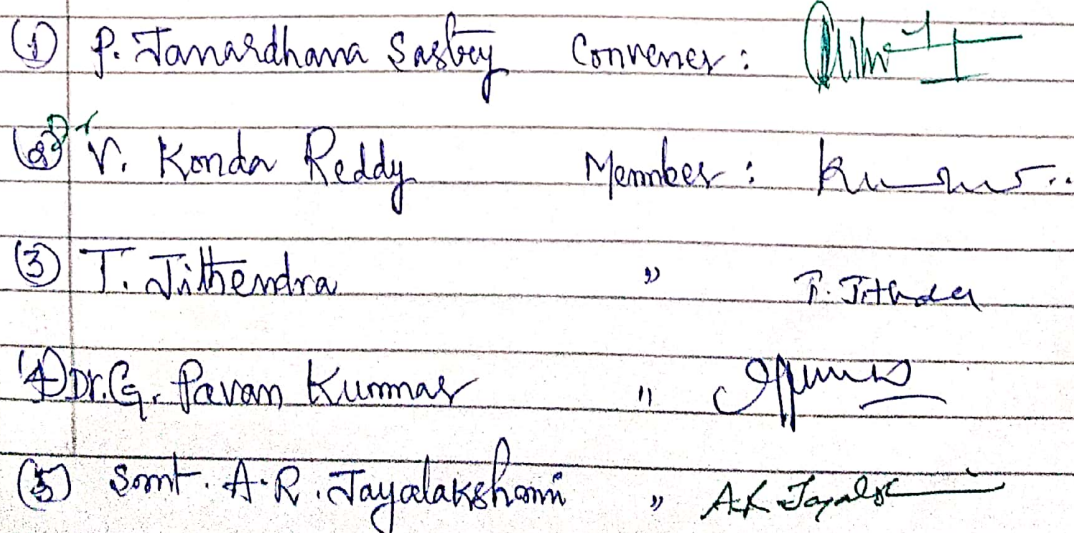 ① P. Janardhana Sastry Convener :
② Dr V. Konda Reddy Member :
③ T. Jithendra " T. Jithender
④ Dr. G. Pavan Kumar "
⑤ Smt. A.R. Jayalakshmi "